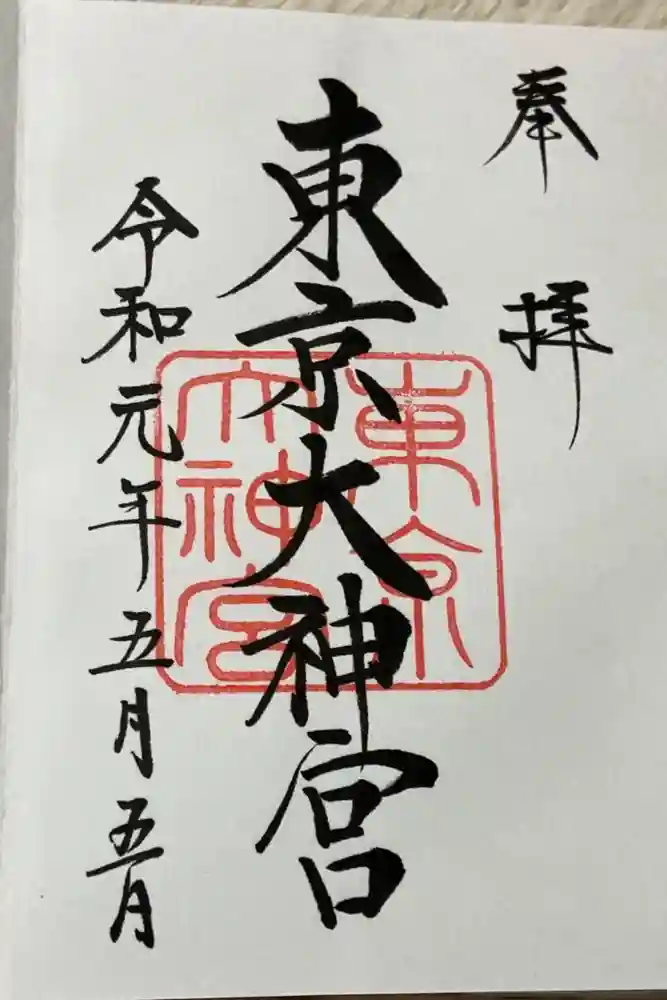 奉拝
東京大神宮
令和元年五月五月
東京
大神宮